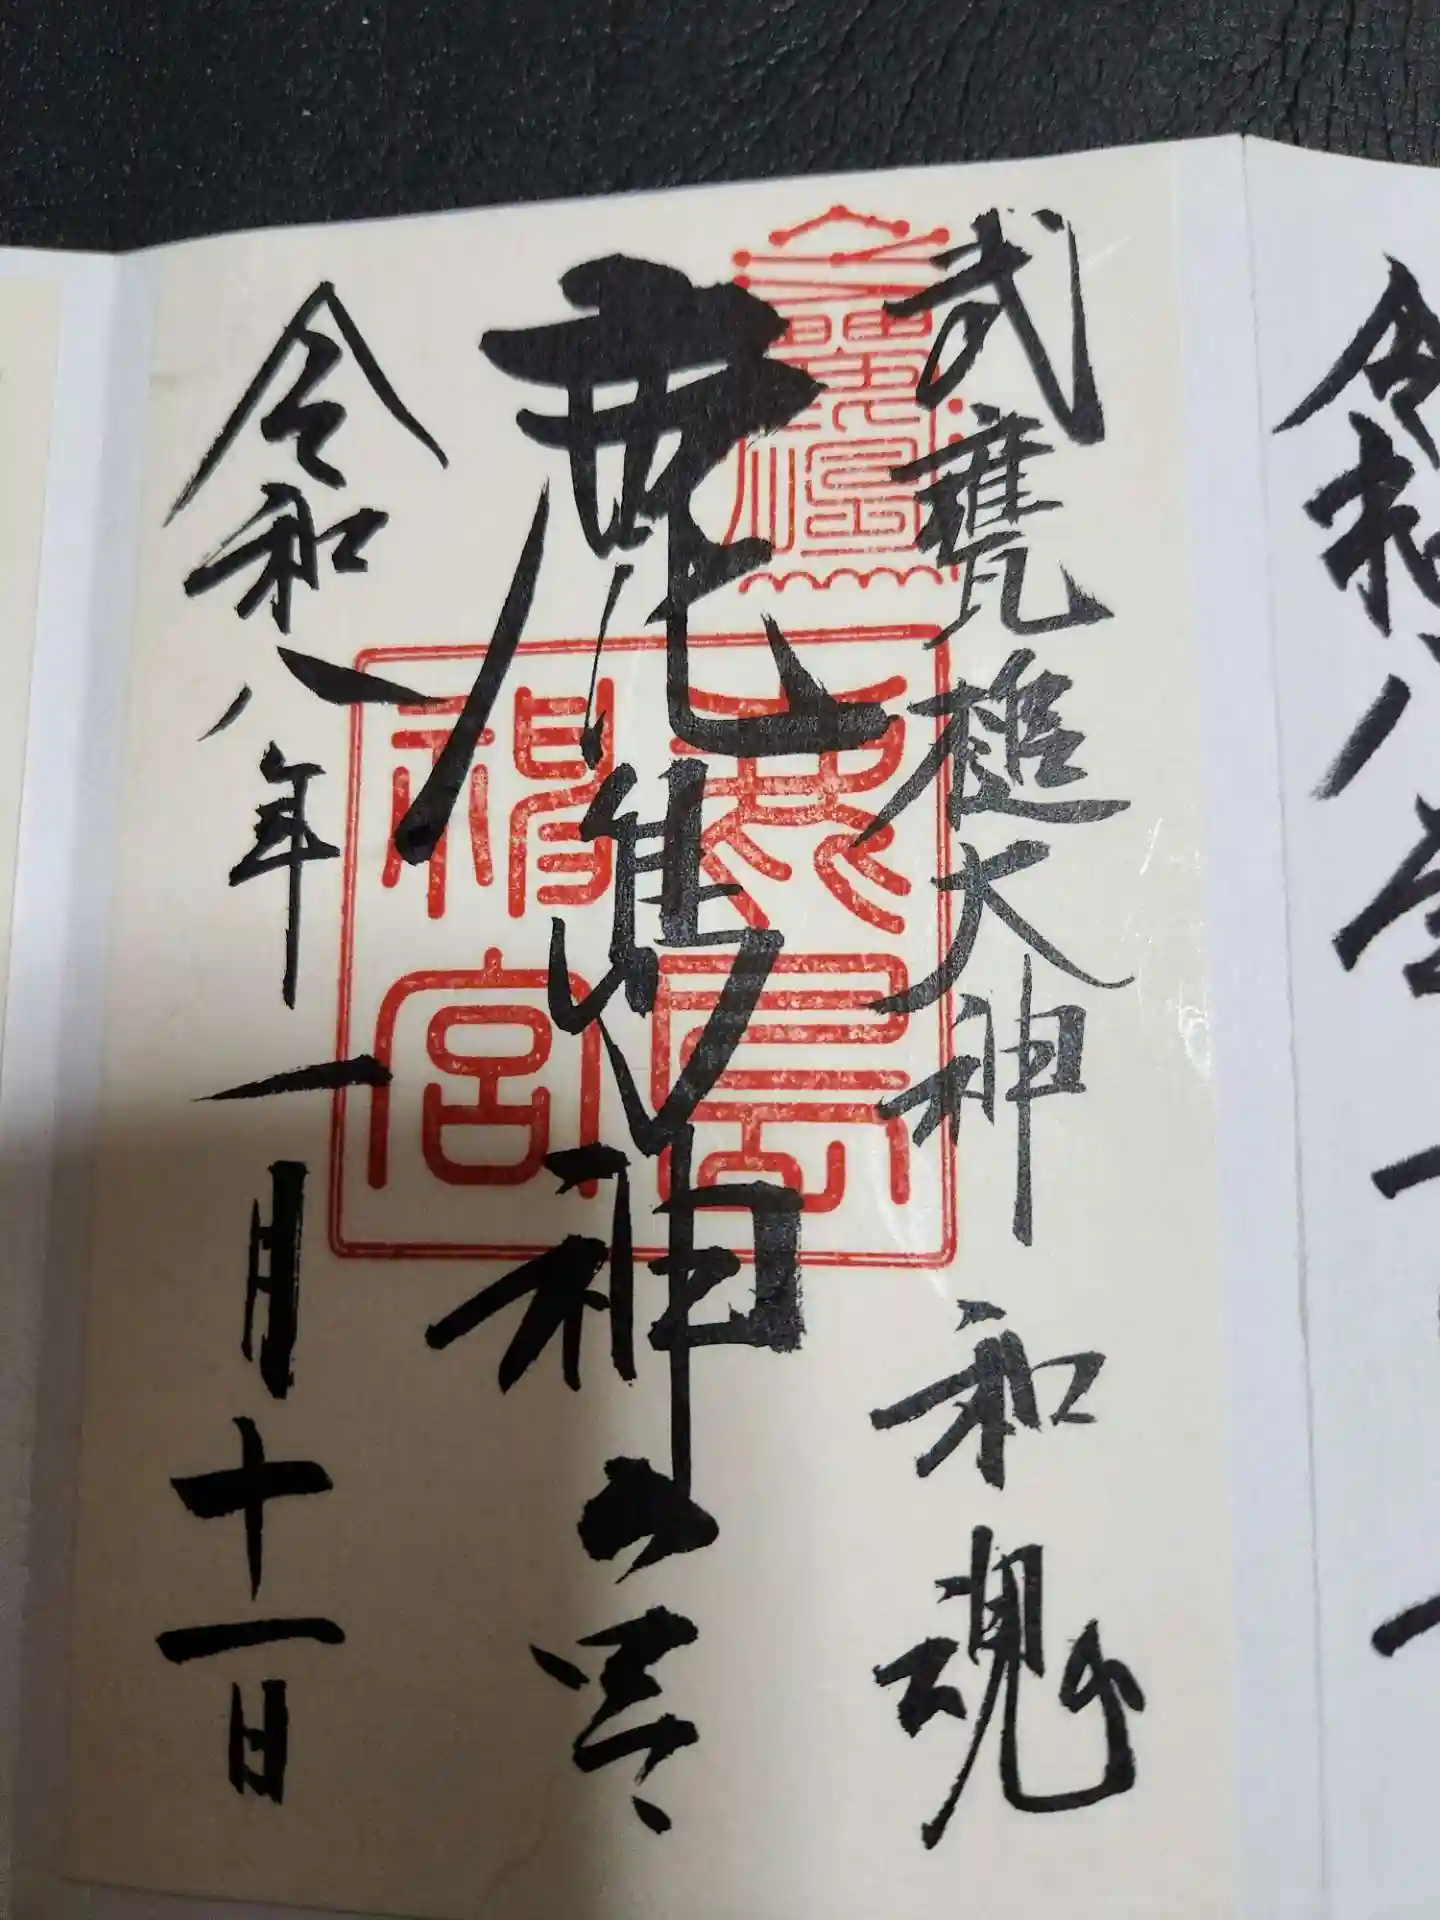 令和八年一
武甕槌大神 和魂
鹿島神宮
令和八年一月十一日
鹿島
神宮